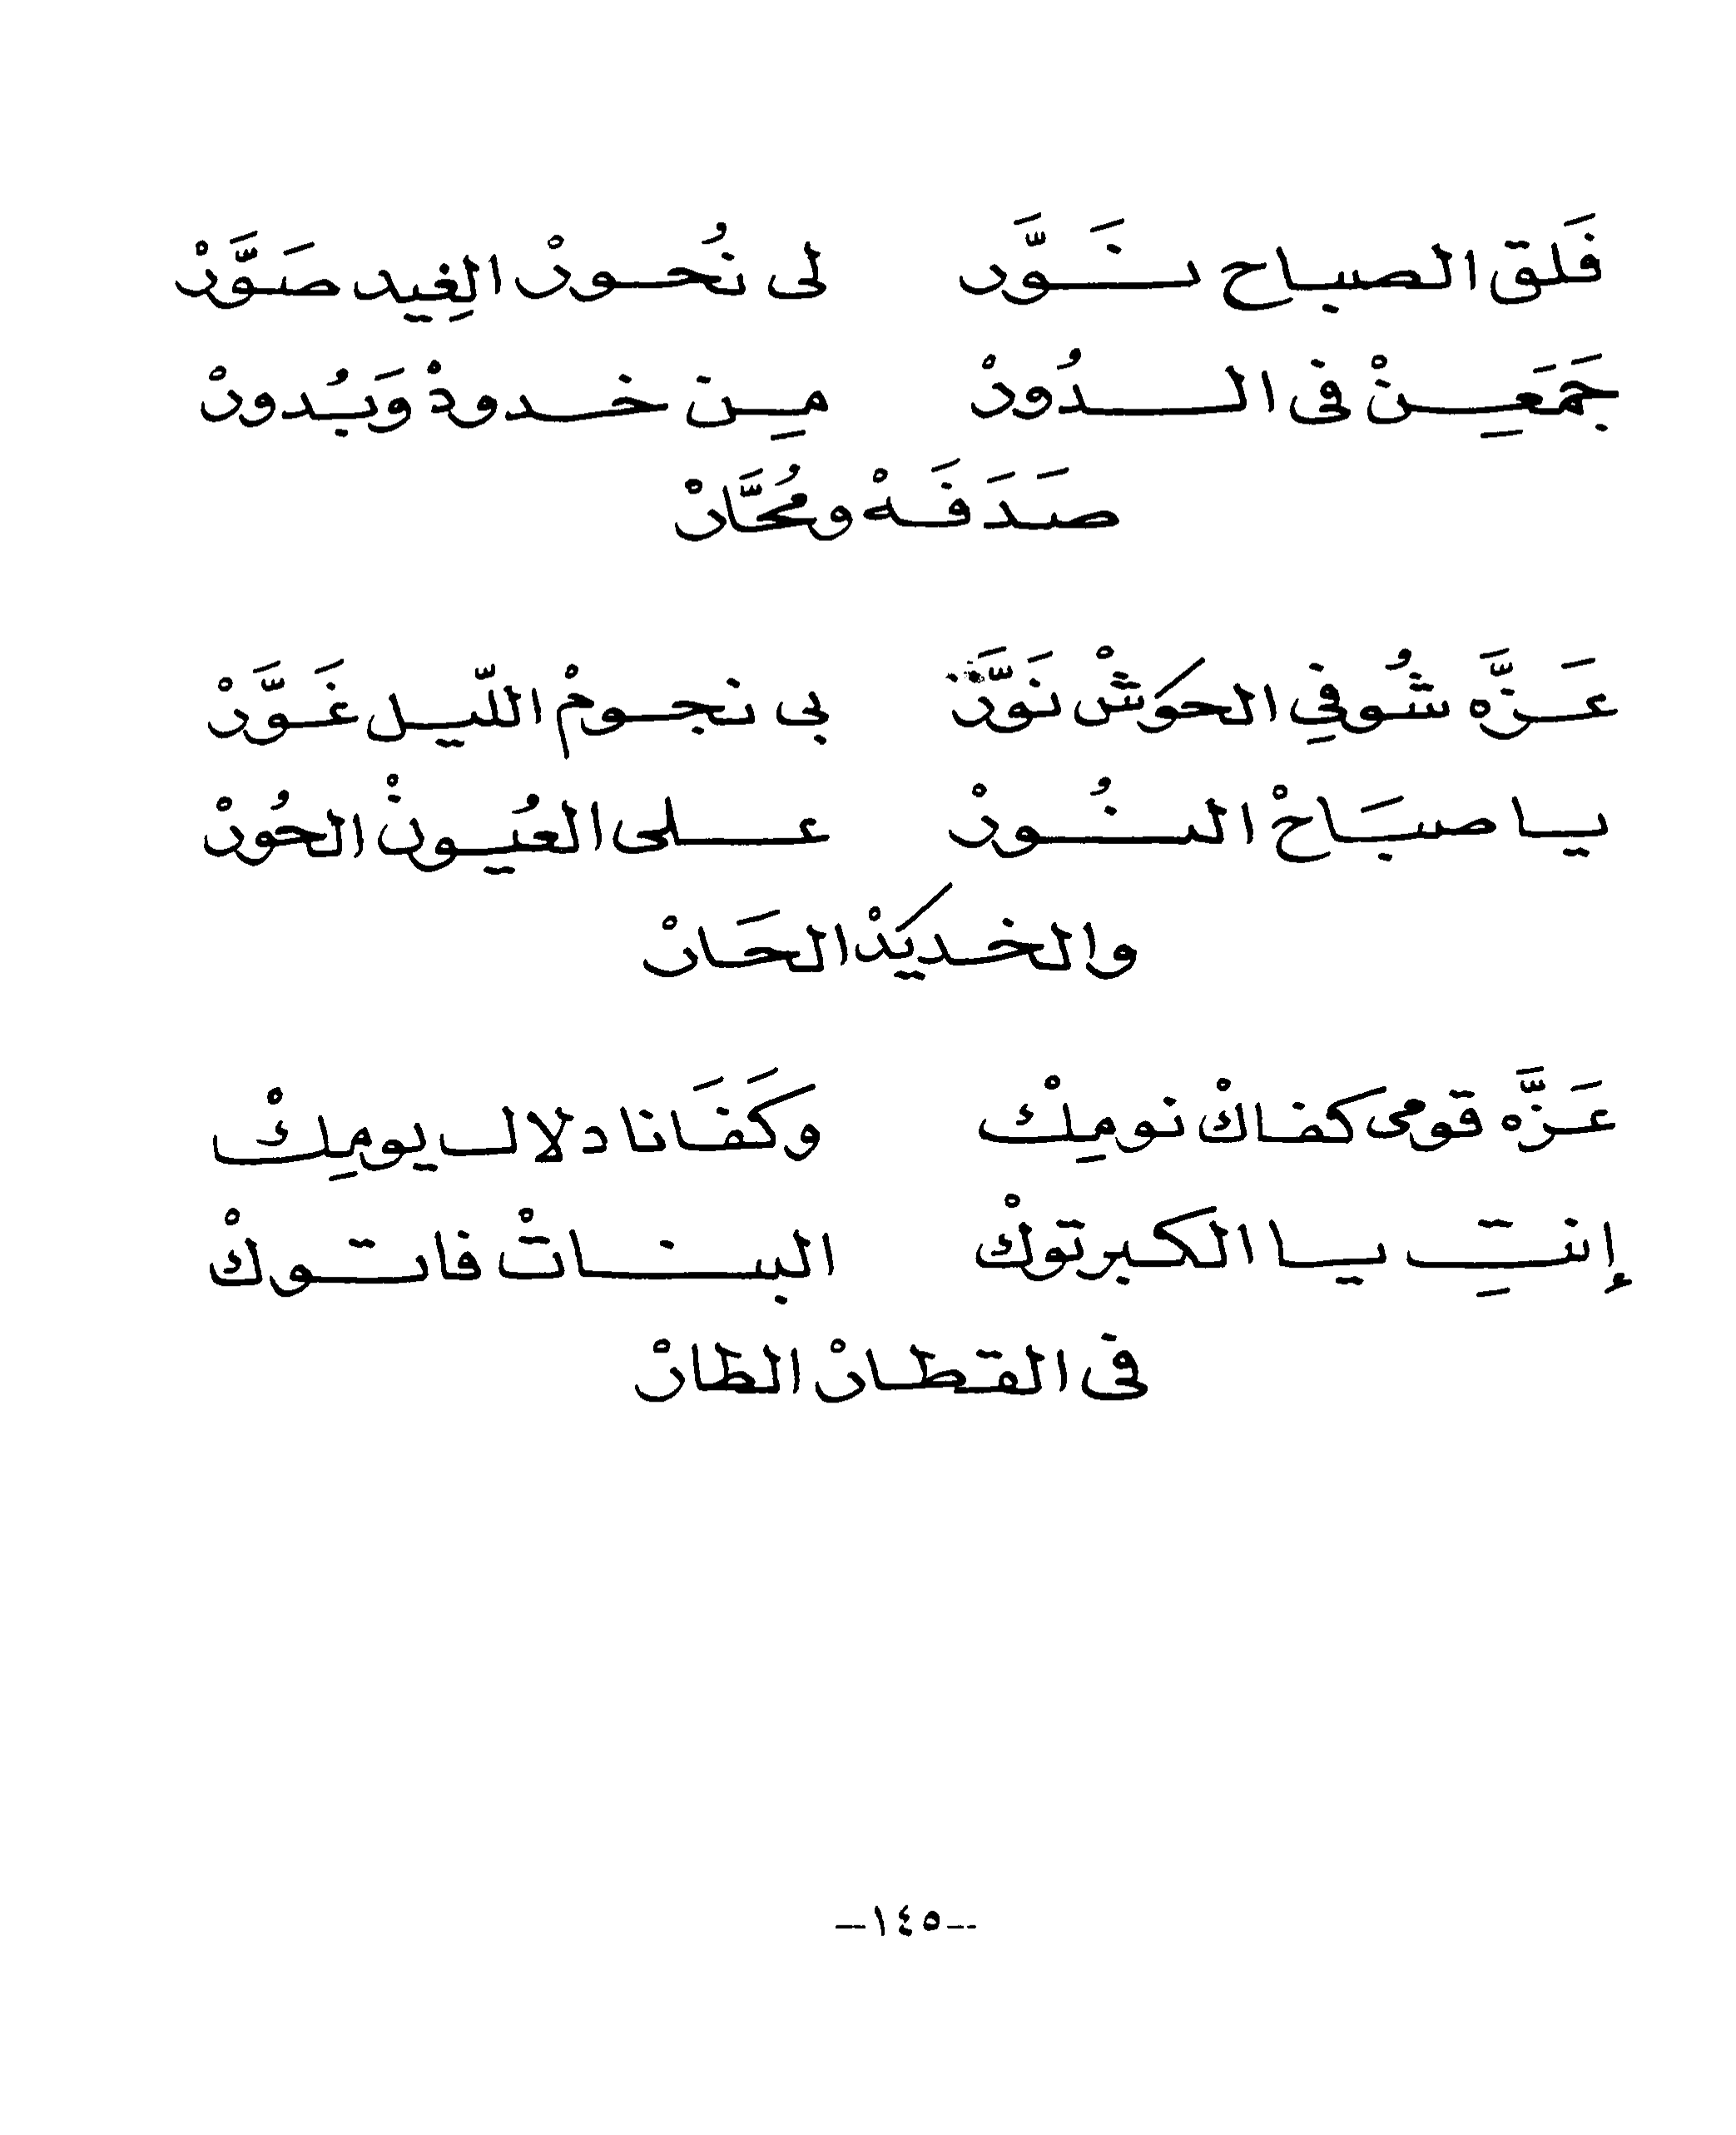 فَلق الصباح نَوَّر لى نُحورْ الغِيد صَوَّرْ
جَمَعِنْ فى الدُورْ مِن خدودْ وَبُدورْ
صَدَفَهْ ومُحَّارْ
عَزَّه شُوفِي الحوَشْ نَوَّرَ بى نجومْ اللّيل غَوَّرْ
يا صبَاحْ النُورْ على العُيونْ الحُورْ
والخديَدْ الحَارْ
عَزَّه قومى كفاكْ نومِكْ وكَفَانا دلال يومِكْ
إنتِ يا الكبرتوكْ البناتْ فاتوكْ
فى القطارْ الطارْ
--١٤٥--